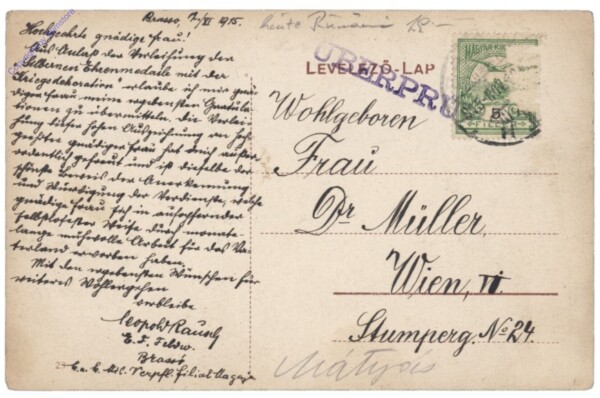 Brasso, 7/XI 1915.
heute Rumänien
Hochgeehrte gnädige Frau!
Aus Anlaß der Verleihung der
Silbernen Ehrenmedaille mit der
"Kriegsdekoration" erlaube ich mir gnä-
digen Frau meine ergebensten Gratula-
tionen zu übermitteln. Die Verlei-
hung dieser hohen Auszeichnung an hoch-
geehrte gnädige Frau hat mich außer-
ordentlich gefreut und ist dieselbe der
schönste Beweis der Anerkennung
und Würdigung der Verdienste, welche
gnädige Frau sich in aufopfernder
selbstlosester Weise durch monate-
lange mühevolle Arbeit für das Va-
terland erworben haben.
Mit den ergebensten Wünschen für
weiteres Wohlergehen
verbleibe
Leopold Rausch
Brassó
k.u.k. Mil. Verpfl. Filial Magazin
LEVELEZŐ-LAP
ÜBERPRÜ
MAGYAR KIR
5
Wohlgeboren
Frau
Dr Müller,
Wien, VI
Stumperg. No 24.
Mátyás